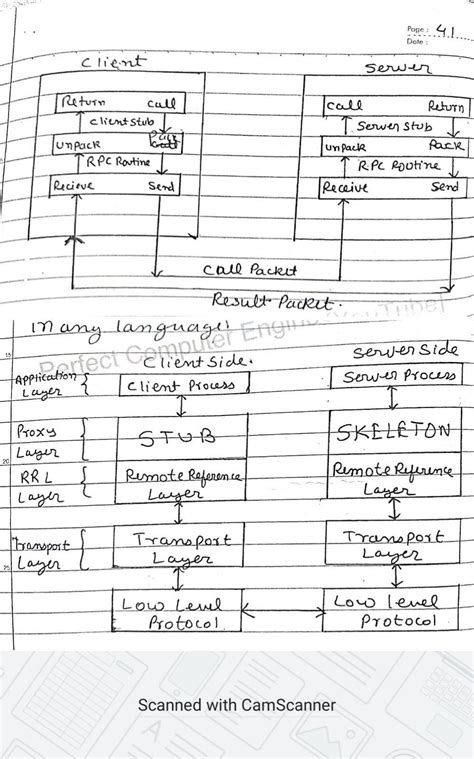 Page: 41
Date:
Client
Server
Return Call
Call Return
Client Stub
Server Stub
Unpack
Unpack Pack
RPC Routine
RPC Routine
Recieve Send
Receive Send
Call Packet
Result Packet.
in any language!
Perfect Computer Engineer (YouTube)
Client Side.
Server Side
15
Application Layer
Client Process
Server Process
Proxy Layer
STUB
SKELETON
20
RRL Layer
Remote Reference Layer
Remote Reference Layer
Transport Layer
Transport Layer
Transport Layer
25
Low Level Protocol
Low level Protocol
Scanned with CamScanner